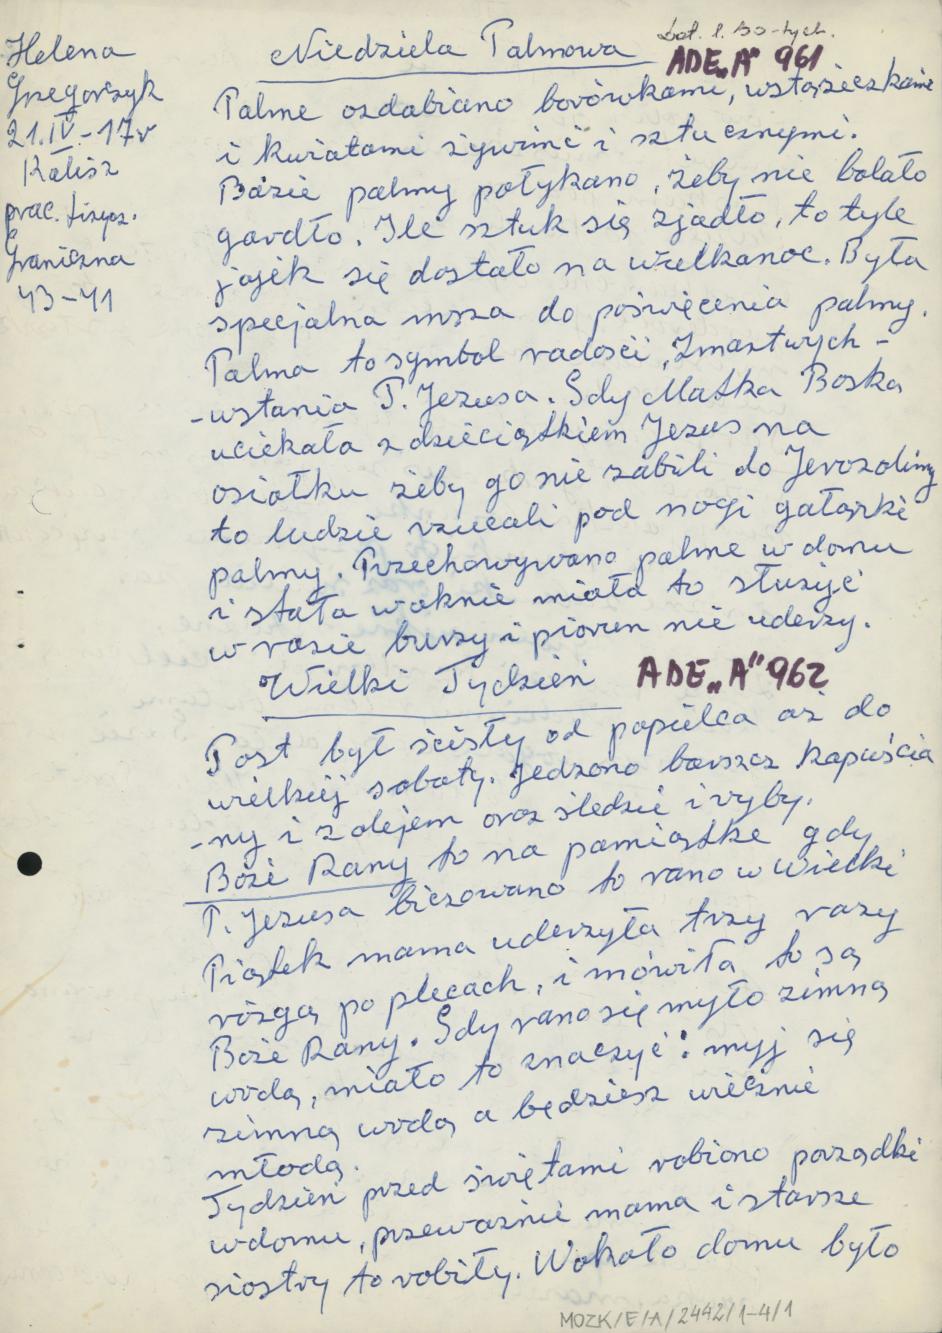 Helena
Grzegorczyk
21.IV.-17r
Kalisz
prac. fizycz.
Graniczna
43-41
Niedziela Palmowa
dot. l. 30-tych.
ADE„A" 961
Palme ozdabiano borówkami, wstążeczkami
i kwiatami żywimi i sztucznymi.
Bazie palmy połykano, żeby nie bolało
gardło. Ile sztuk się zjadło, to tyle
jajek się dostało na wielkanoc. Była
specjalna msza do poświęcenia palmy.
Palma to symbol radości, Zmartwych-
-wstania P. Jezusa. Gdy Matka Boska
uciekała z dzieciątkiem Jezus na
osiołku żeby go nie zabili do Jerozolimy
to ludzie rzucali pod nogi gałązki
palmy. Przechowywano palme w domu
i stała woknie miała to służyć
w razie burzy i piorun nie uderzy.
Wielki Tydzień
ADE„A" 962
Post był ścisły od popielca aż do
wielkiej soboty. Jedzono barszcz kapuścia
-ny i z olejem oraz śledzie i ryby.
Boże Rany to na pamiątke gdy
P. Jezusa biczowano to rano w Wielki
Piątek mama uderzyła trzy razy
rózgą po plecach, i mówiła to są
Boże Rany. Gdy rano się myło zimną
wodą, miało to znaczyć: myj się
zimną wodą a będziesz wiecznie
młodą.
Tydzień przed świętami robiono porządki
wdomu, przeważnie mama i starsze
siostry to robiły. Wokoło domu było
MOZK/E/A/2442/1-4/1